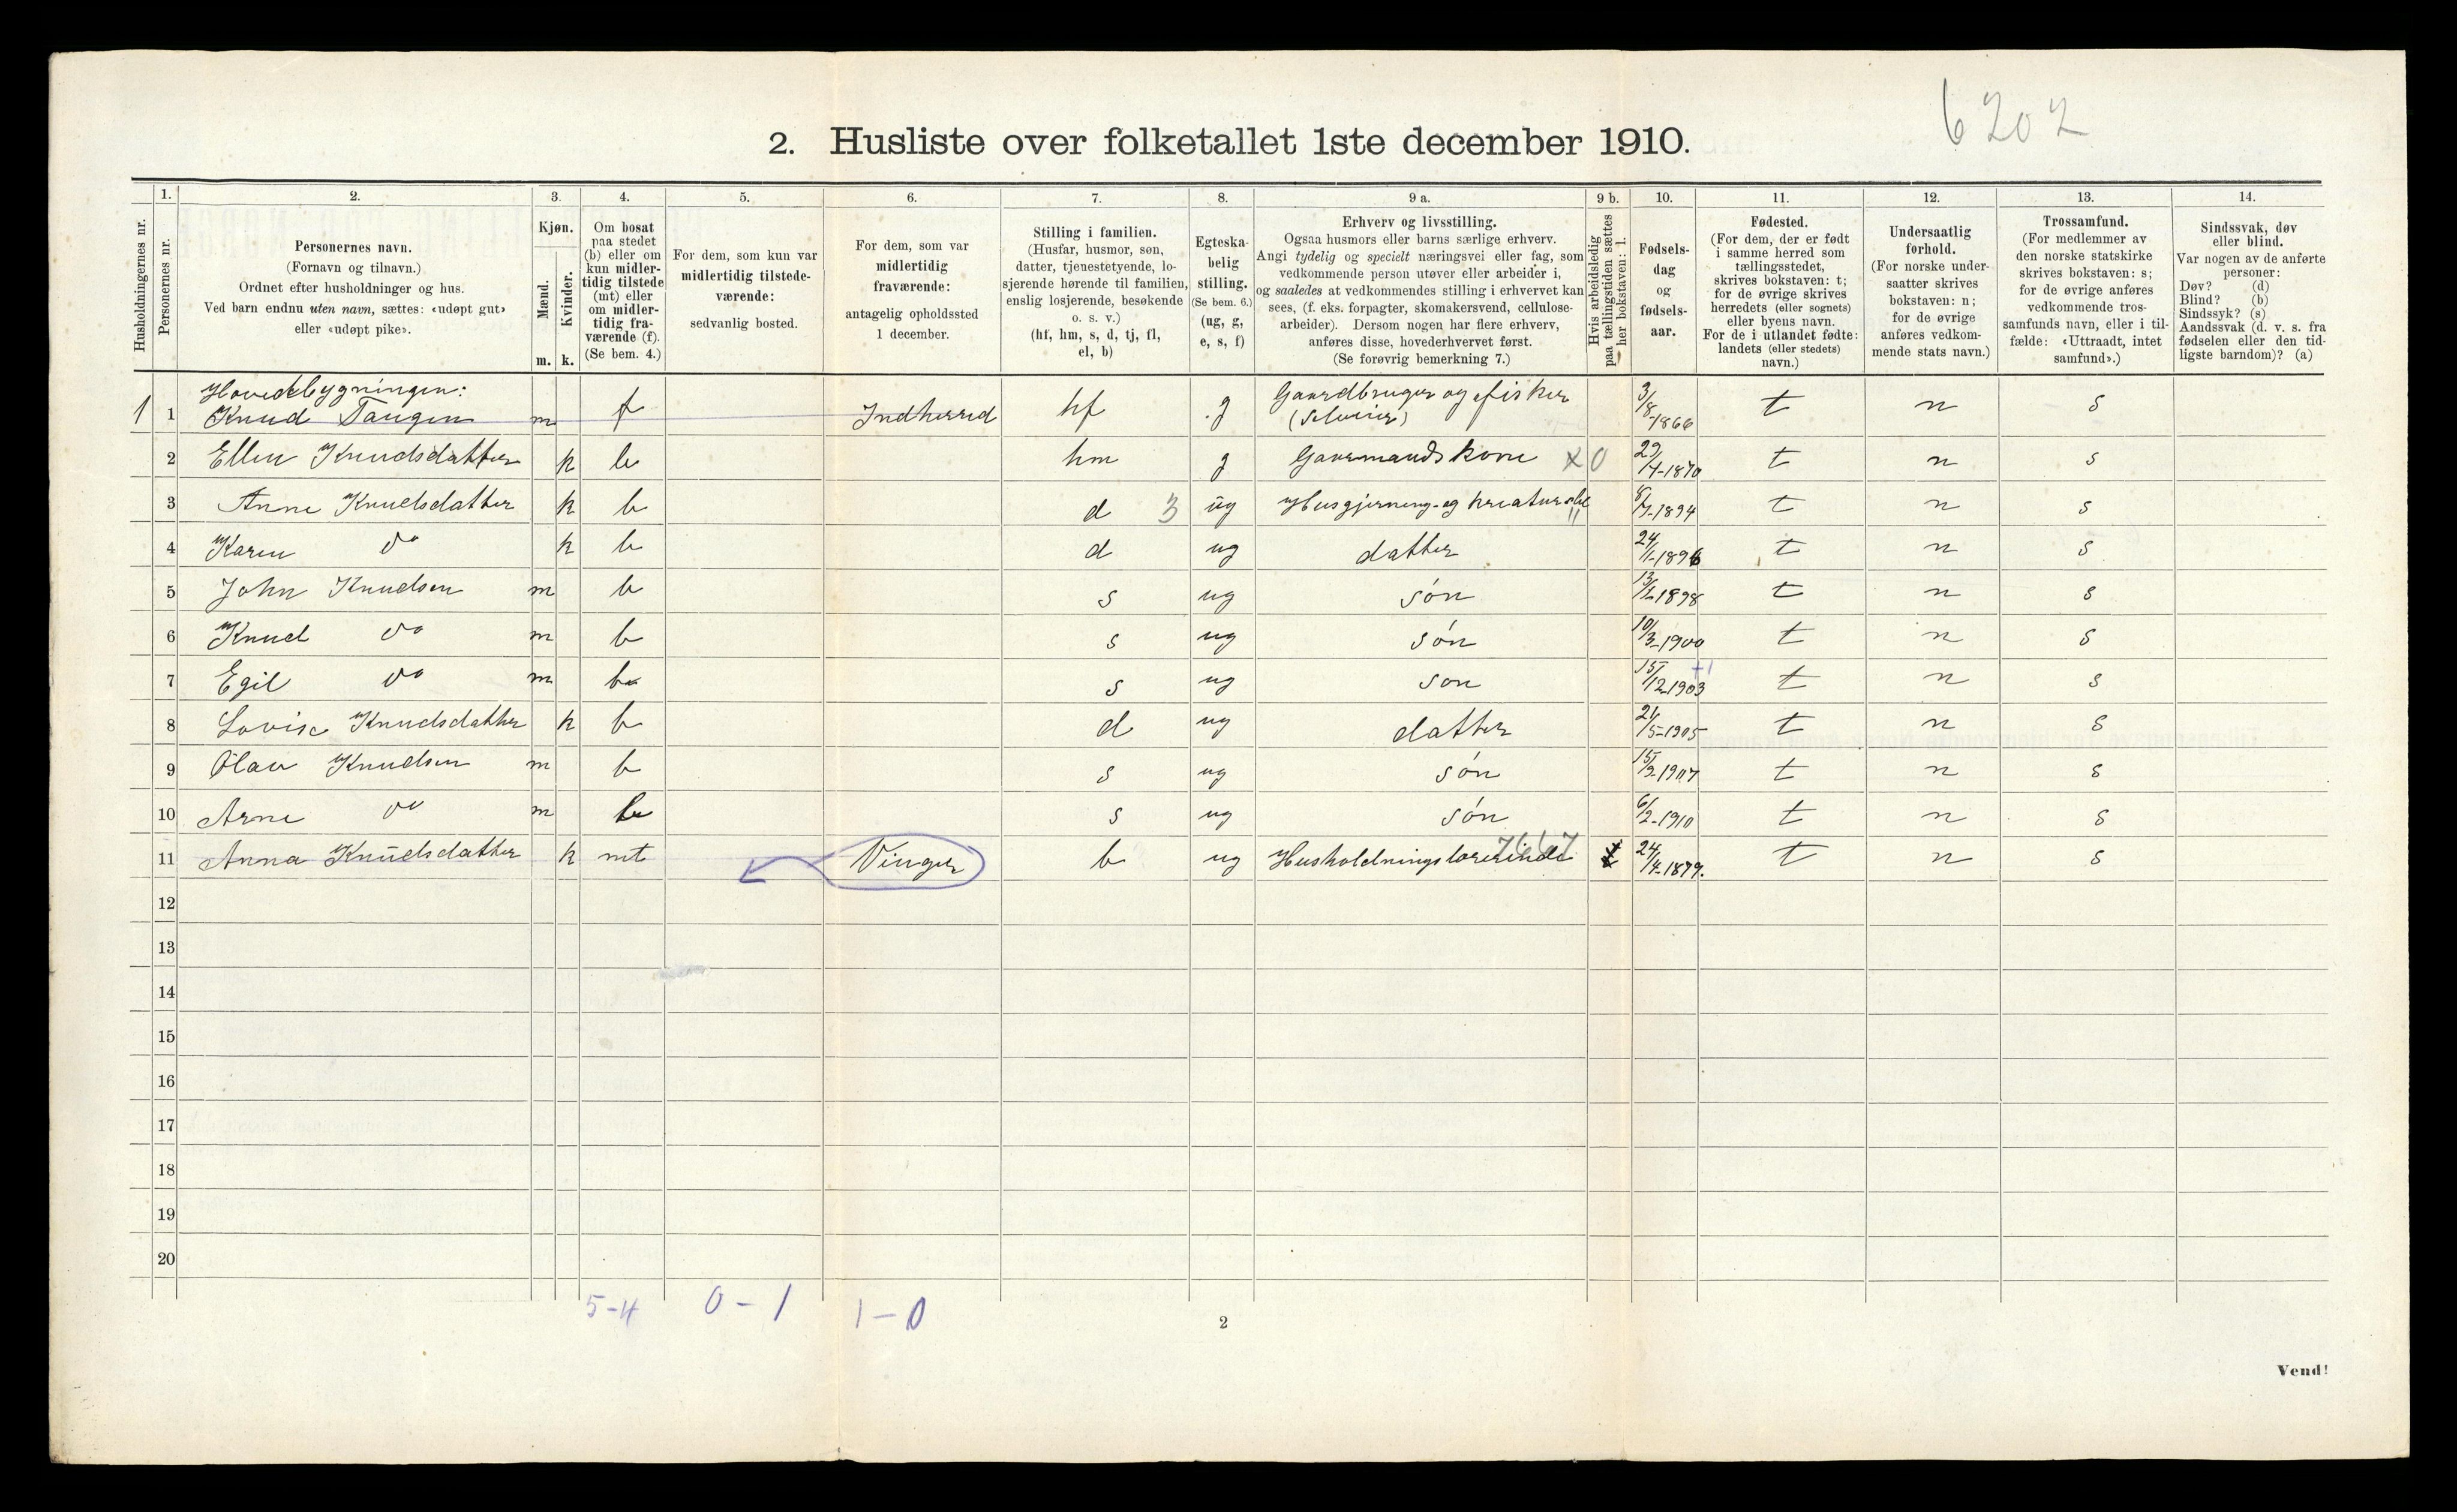 6202
2. Husliste over folketallet 1ste december 1910.
Husholdningernes nr.
1.
Personernes nr.
2.
Personernes navn.
(Fornavn og tilnavn.)
Ordnet efter husholdninger og hus.
Ved barn endnu uten navn, sættes: «udøpt gut»
eller «udøpt pike».
3.
Kjøn.
Mænd.
Kvinder.
m. k.
4.
Om bosat
paa stedet
(b) eller om
kun midler-
tidig tilstede
(mt) eller
om midler-
tidig fra-
værende (f).
(Se bem. 4.)
5.
For dem, som kun var
midlertidig tilstede-
værende:
sedvanlig bosted.
6.
For dem, som var
midlertidig
fraværende:
antagelig opholdssted
1 december.
7.
Stilling i familien.
(Husfar, husmor, søn,
datter, tjenestetyende, lo-
sjerende hørende til familien,
enslig losjerende, besøkende
o. s. v.)
(hf, hm, s, d, tj, fl,
el, b)
8.
Egteska-
belig
stilling.
(Se bem. 6.)
(ug, g,
e, s, f)
9 a.
Erhverv og livsstilling.
Ogsaa husmors eller barns særlige erhverv.
Angi tydelig og specielt næringsvei eller fag, som
vedkommende person utøver eller arbeider i,
og saaledes at vedkommendes stilling i erhvervet kan
sees, (f. eks. forpagter, skomakersvend, cellulose-
arbeider). Dersom nogen har flere erhverv,
anføres disse, hovederhvervet først.
(Se forøvrig bemerkning 7.)
9 b.
Hvis arbeidsledig
paa tællingstiden sættes
her bokstaven: l.
10.
Fødsels-
dag
og
fødsels-
aar.
11.
Fødested.
(For dem, der er født
i samme herred som
tællingsstedet,
skrives bokstaven: t;
for de øvrige skrives
herredets (eller sognets)
eller byens navn.
For de i utlandet fødte:
landets (eller stedets)
navn.)
12.
Undersaatlig
forhold.
(For norske under-
saatter skrives
bokstaven: n;
for de øvrige
anføres vedkom-
mende stats navn.)
13.
Trossamfund.
(For medlemmer av
den norske statskirke
skrives bokstaven: s;
for de øvrige anføres
vedkommende tros-
samfunds navn, eller i til-
fælde: «Uttraadt, intet
samfund».)
14.
Sindssvak, døv
eller blind.
Var nogen av de anførte
personer:
Døv? (d)
Blind? (b)
Sindssyk? (s)
Aandssvak (d. v. s. fra
fødselen eller den tid-
ligste barndom)? (a)
Hovedbygningen:
1 1 Knud Tangen m f Indherred hf g Gaardbruger og fisker (Seleier) 3/8-1866 t n s
2 Ellen Knudsdatter k b hm g Gaarmands kone x0 29/4-1870 t n s
3 Anne Knudsdatter k b d 3 ug Husgjerning- og kreaturstel 8/7-1894 t n s
4 Karen do k b d ug datter 24/1-1896 t n s
5 John Knudsen m b s ug søn 13/2-1898 t n s
6 Knud do m b s ug søn 10/3-1900 t n s
7 Egil do m b s ug søn 15/12-1903 +1 t n s
8 Lovise Knudsdatter k b d ug datter 21/5-1905 t n s
9 Olav Knudsen m b s ug søn 15/9-1907 t n s
10 Arne do m b s ug søn 6/2-1910 t n s
11 Anna Knudsdatter k mt Vinger b ug Husholdningslærerinde 7667 24/4-1879. t n s
12
13
14
15
16
17
18
19
20
5-4 0-1 1-0
2
Vend!